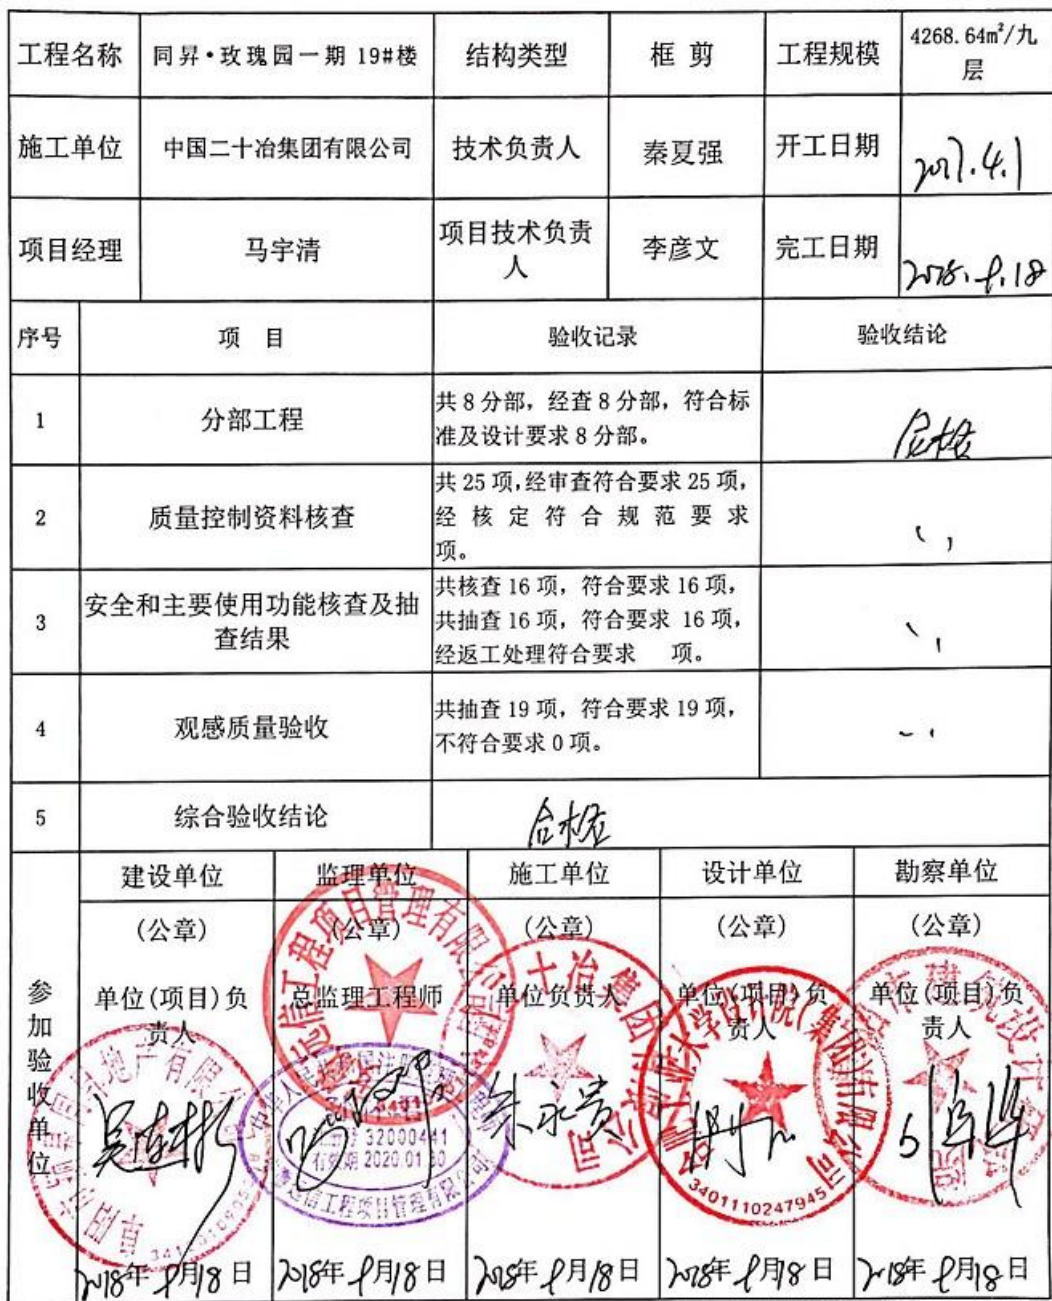 工程名称 同昇·玫瑰园一期 19#楼 结构类型 框 剪 工程规模 4268.64m²/九
层
施工单位 中国二十冶集团有限公司 技术负责人 秦夏强 开工日期 2017.4.1
项目经理 马宇清 项目技术负责
人 李彦文 完工日期 2018.9.18
序号 项 目 验收记录 验收结论
1 分部工程 共 8 分部，经查 8 分部，符合标
准及设计要求 8 分部。 合格
2 质量控制资料核查 共 25 项，经审查符合要求 25 项，
经 核 定 符 合 规 范 要 求
项。
3 安全和主要使用功能核查及抽
查结果 共核查 16 项，符合要求 16 项，
共抽查 16 项，符合要求 16 项，
经返工处理符合要求 项。
4 观感质量验收 共抽查 19 项，符合要求 19 项，
不符合要求 0 项。
5 综合验收结论 合格
参加验收单位
建设单位 监理单位 施工单位 设计单位 勘察单位
(公章) (公章) (公章) (公章) (公章)
单位(项目)负
责人 总监理工程师 单位负责人 单位(项目)负
责人 单位(项目)负
责人
32000441
有效期 2020.01.30
朱永贵
3401110247945
2018年9月18日 2018年9月18日 2018年9月18日 2018年9月18日 2018年9月18日